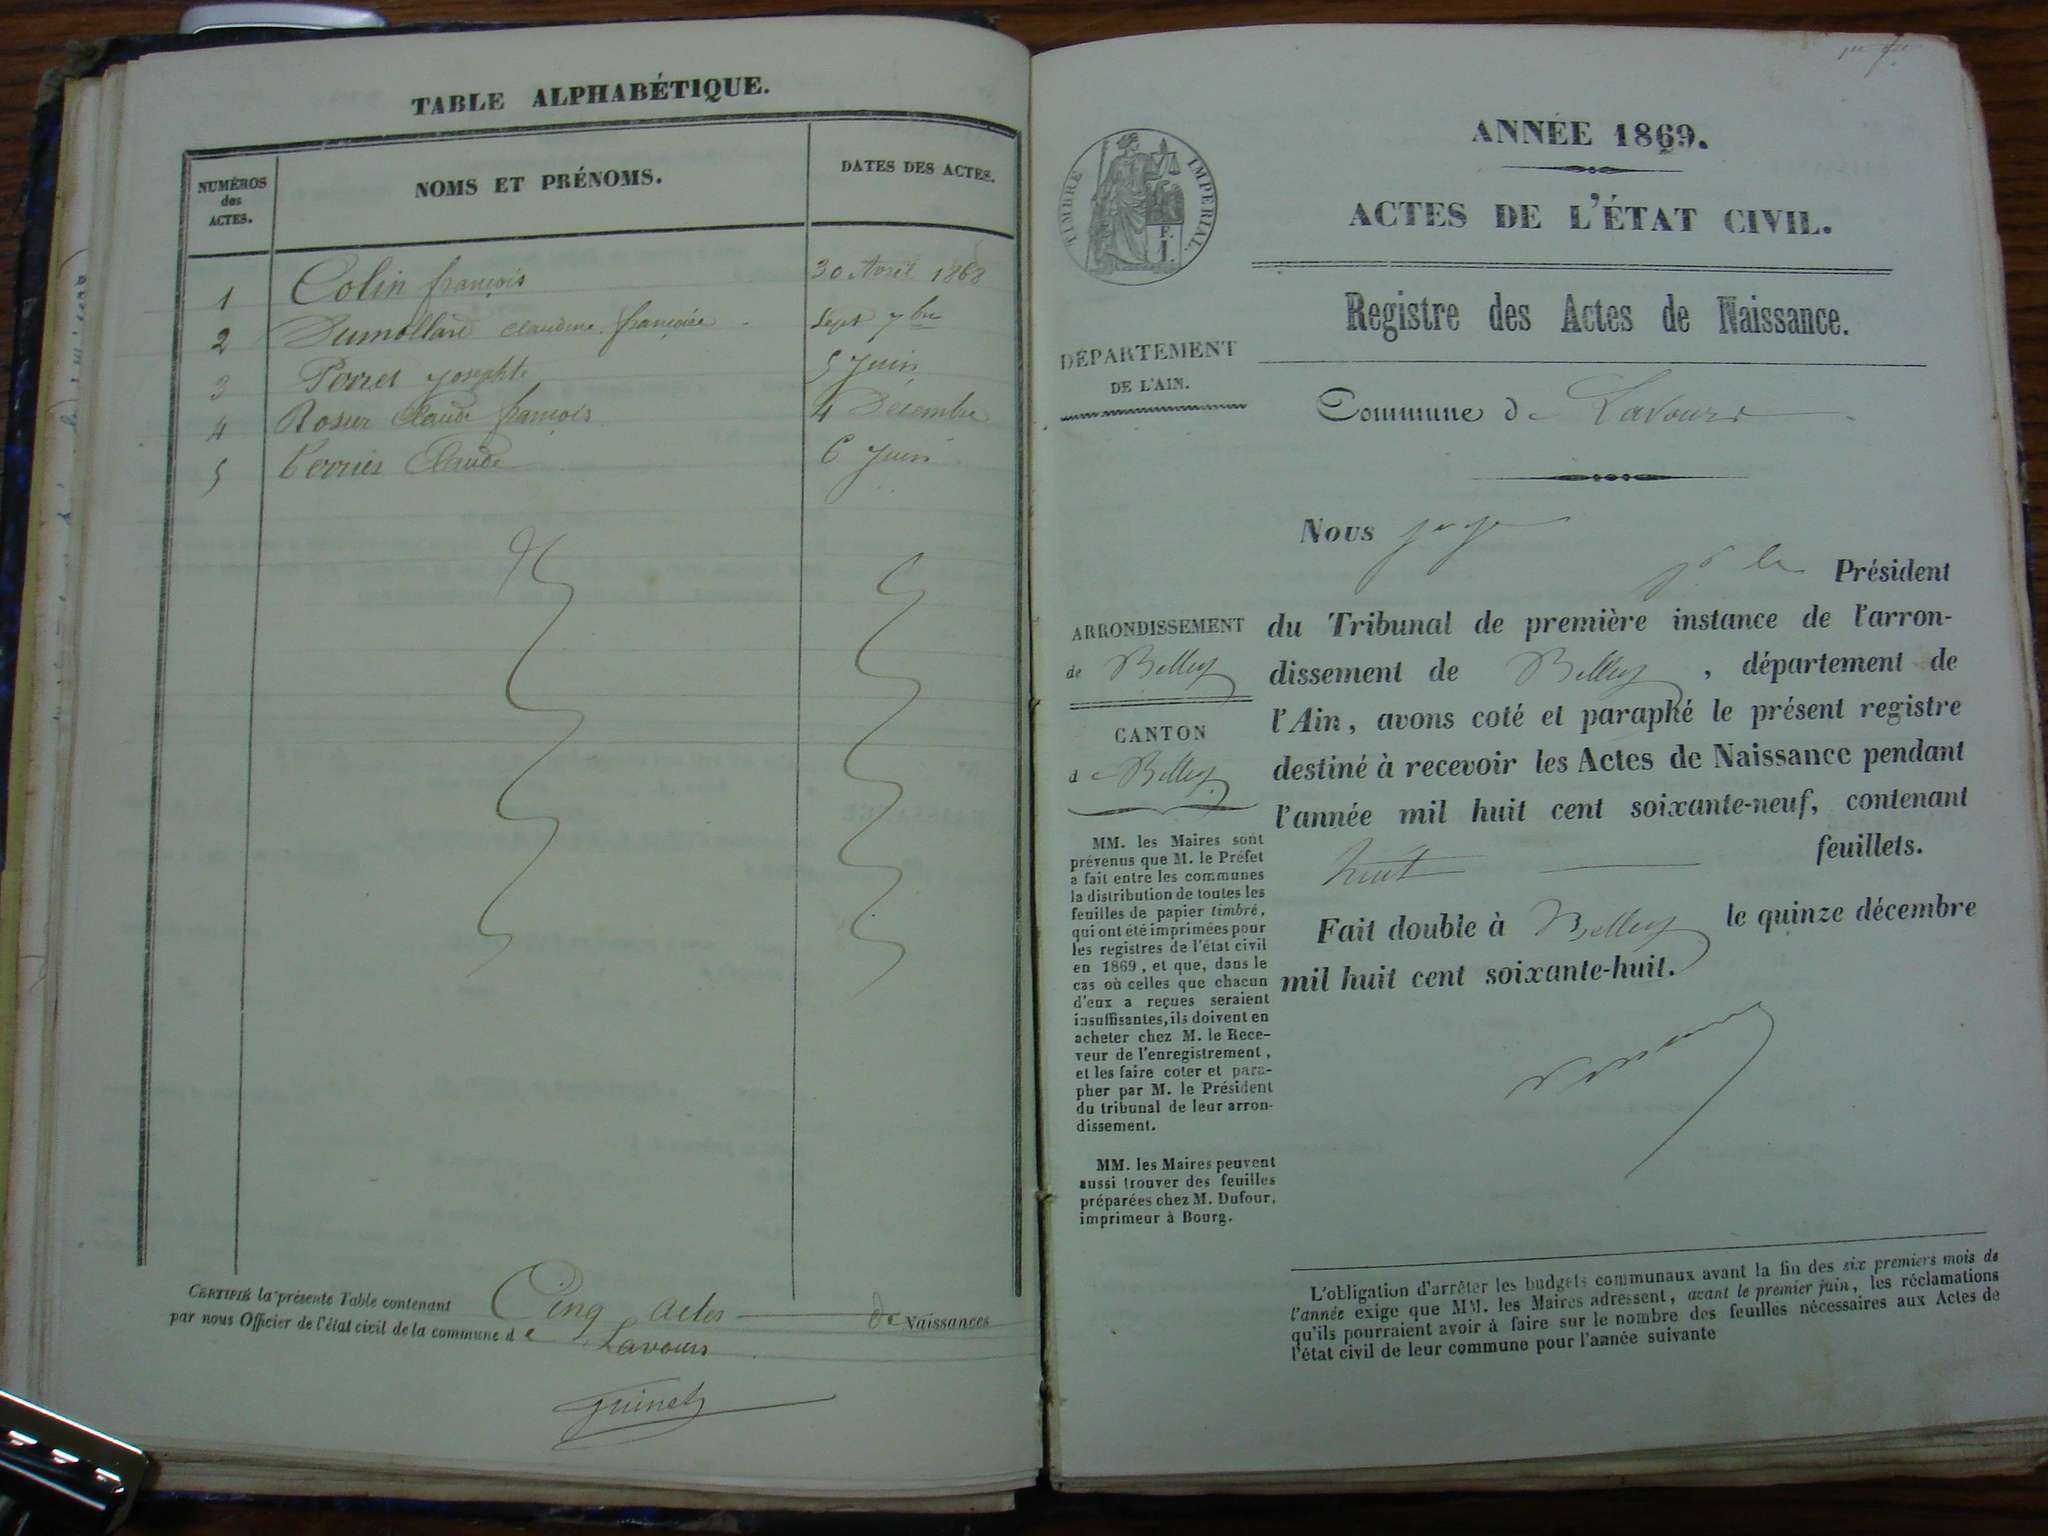 TABLE ALPHABÉTIQUE.
NUMÉROS des ACTES.
NOMS ET PRÉNOMS.
DATES DES ACTES.
1 Colin françois 30 Avril 1868
2 Dumollard claudine françoise Sept 7bre
3 Perret josephte 5 Juin
4 Rosier Claude françois 4 Décembre
5 Claude 6 Juin
CERTIFIÉ la présente Table contenant Cinq actes de Naissances
par nous Officier de l'état civil de la commune de Lavours
Guinet
ANNÉE 1869.
ACTES DE L'ÉTAT CIVIL.
TIMBRE IMPERIAL.
F.
1.
Registre des Actes de Naissance.
DÉPARTEMENT
DE L'AIN.
Commune de Lavours
Nous
Président
du Tribunal de première instance de l'arron-
dissement de Belley, département de
l'Ain, avons coté et paraphé le présent registre
destiné à recevoir les Actes de Naissance pendant
l'année mil huit cent soixante-neuf, contenant
huit feuillets.
Fait double à Belley le quinze décembre
mil huit cent soixante-huit.
ARRONDISSEMENT
de Belley
CANTON
de Belley
MM. les Maires sont
prévenus que M. le Préfet
a fait entre les communes
la distribution de toutes les
feuilles de papier timbré,
qui ont été imprimées pour
les registres de l'état civil
en 1869, et que, dans le
cas où celles que chacun
d'eux a reçues seraient
insuffisantes, ils doivent en
acheter chez M. le Rece-
veur de l'enregistrement,
et les faire coter et para-
pher par M. le Président
du tribunal de leur arron-
dissement.
MM. les Maires peuvent
aussi trouver des feuilles
préparées chez M. Dufour,
imprimeur à Bourg.
L'obligation d'arrêter les budgets communaux avant la fin des six premiers mois de
l'année exige que MM. les Maires adressent, avant le premier juin, les réclamations
qu'ils pourraient avoir à faire sur le nombre des feuilles nécessaires aux Actes de
l'état civil de leur commune pour l'année suivante